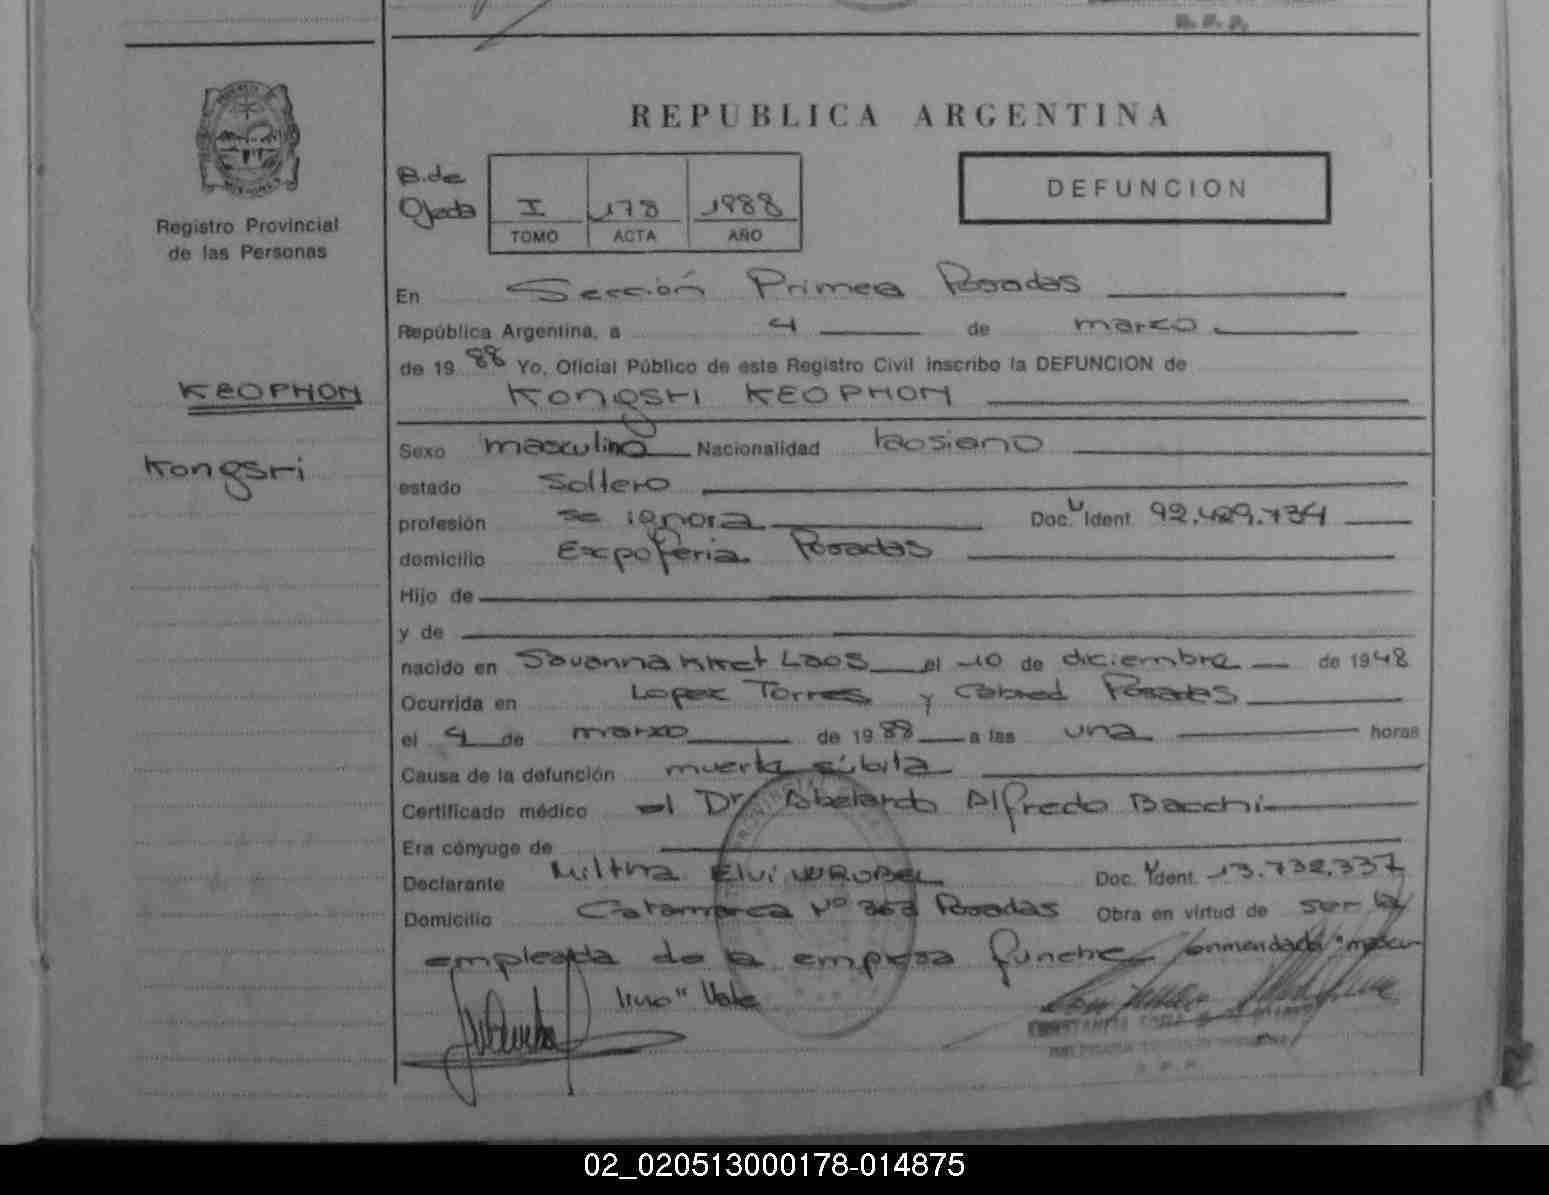 REPUBLICA ARGENTINA
B. de Ojeda
I 178 1988
TOMO ACTA AÑO
DEFUNCION
Registro Provincial
de las Personas
En Sección Primera Posadas
República Argentina, a 4 de marzo
de 19 88 Yo, Oficial Público de este Registro Civil inscribo la DEFUNCION de
KEOPHON
Kongsri KEOPHON
Kongsri
Sexo masculino Nacionalidad laosiano
estado Soltero
profesión se ignora Doc. Ident 92.429.734
domicilio Expoferia Posadas
Hijo de
y de
nacido en Savannakhet Laos el 10 de diciembre de 1948
Ocurrida en Lopez Torres y Cabred Posadas
el 4 de marzo de 19 88 a las una horas
Causa de la defunción muerte súbita
Certificado médico el Dr. Abelardo Alfredo Bacchi
Era cónyuge de
Declarante Miltha Elvi WROBEL Doc. Ident. 13.732.337
Domicilio Catamarca Nº 363 Posadas Obra en virtud de ser la
empleada de la empresa funebre enmendado "mascu-
lino" Vale
02_020513000178-014875